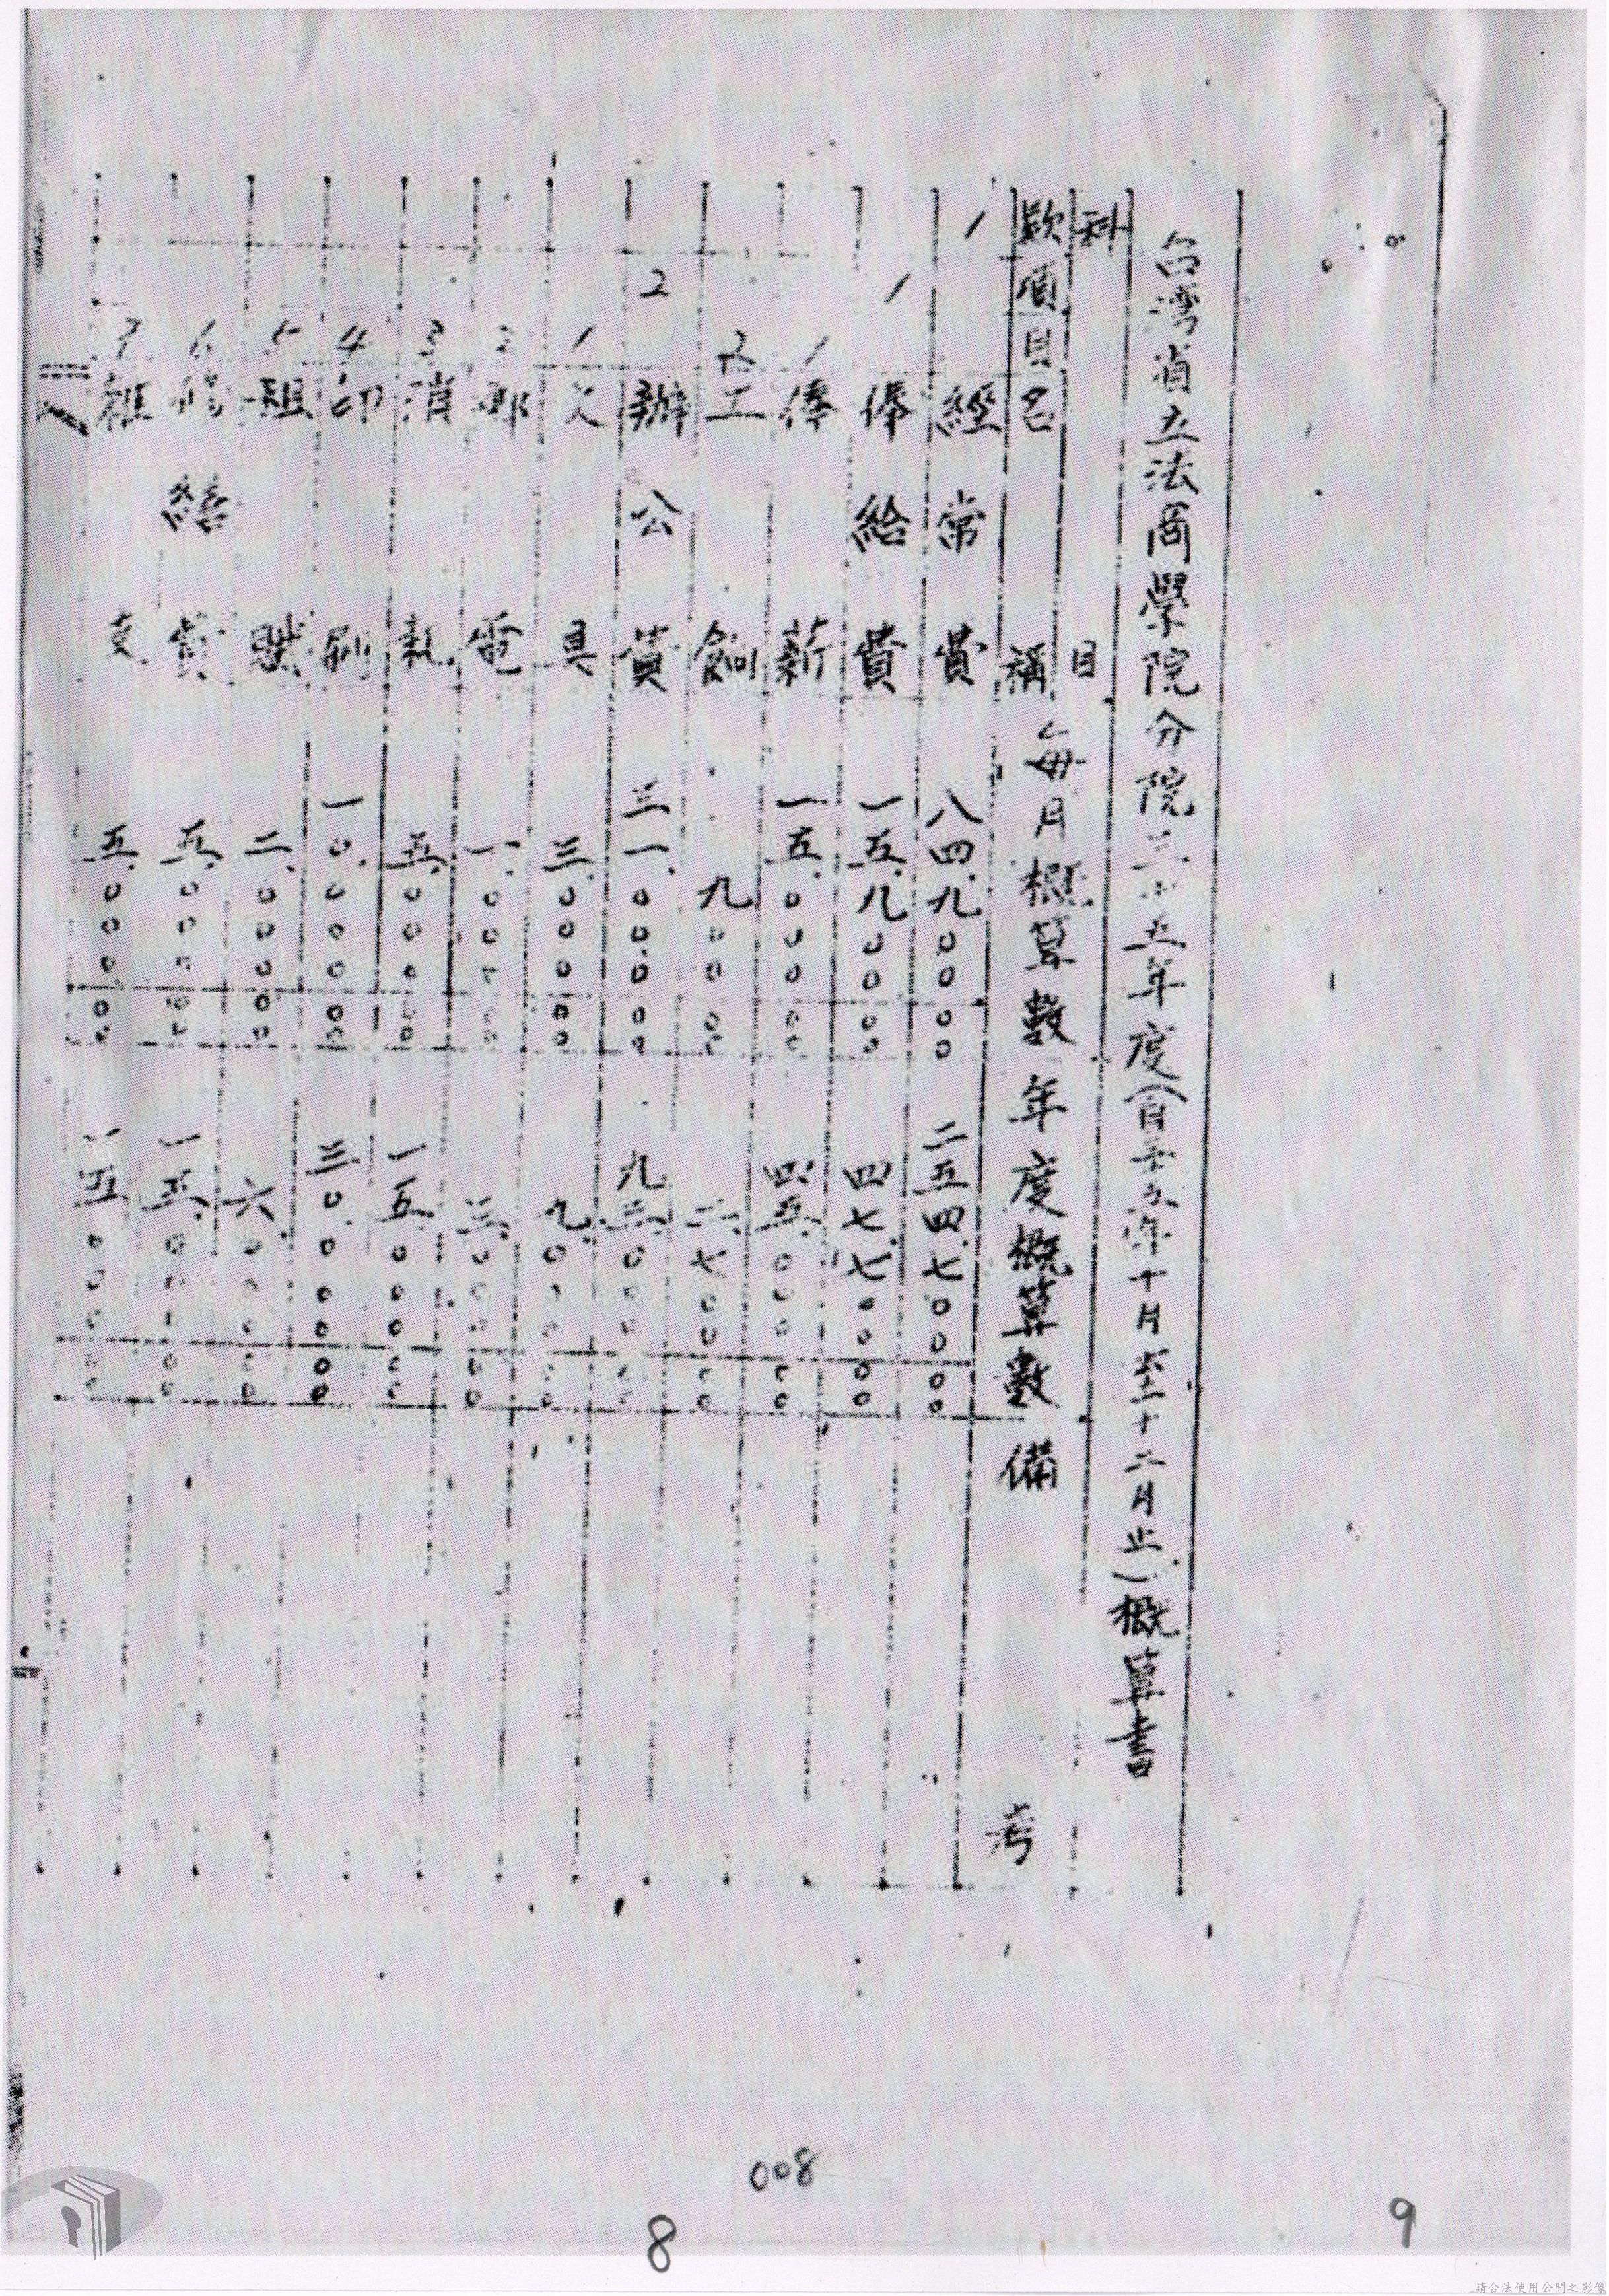 台湾省立法商學院分院三十五年度(自卅五年十月至十二月止)概算書
科目
款項目名稱 每月概算數 年度概算數 備考
1 經常費 八四.九〇〇〇〇 二五四.七〇〇〇〇
1 俸給費 一五.九〇〇〇〇 四七.七〇〇〇〇
1 俸薪 一五.〇〇〇〇〇 四五.〇〇〇〇〇
2 工餉 九〇〇〇〇 二.七〇〇〇〇
2 辦公費 三一.〇〇〇〇〇 九三.〇〇〇〇〇
1 文具 三.〇〇〇〇〇 九.〇〇〇〇〇
2 郵電 一.〇〇〇〇〇 三.〇〇〇〇〇
3 消耗 五.〇〇〇〇〇 一五.〇〇〇〇〇
4 印刷 一〇.〇〇〇〇〇 三〇.〇〇〇〇〇
5 租賦 二.〇〇〇〇〇 六.〇〇〇〇〇
6 修繕費 五.〇〇〇〇〇 一五.〇〇〇〇〇
7 雜支 五.〇〇〇〇〇 一五.〇〇〇〇〇
008
8
9
請合法使用公開之影像